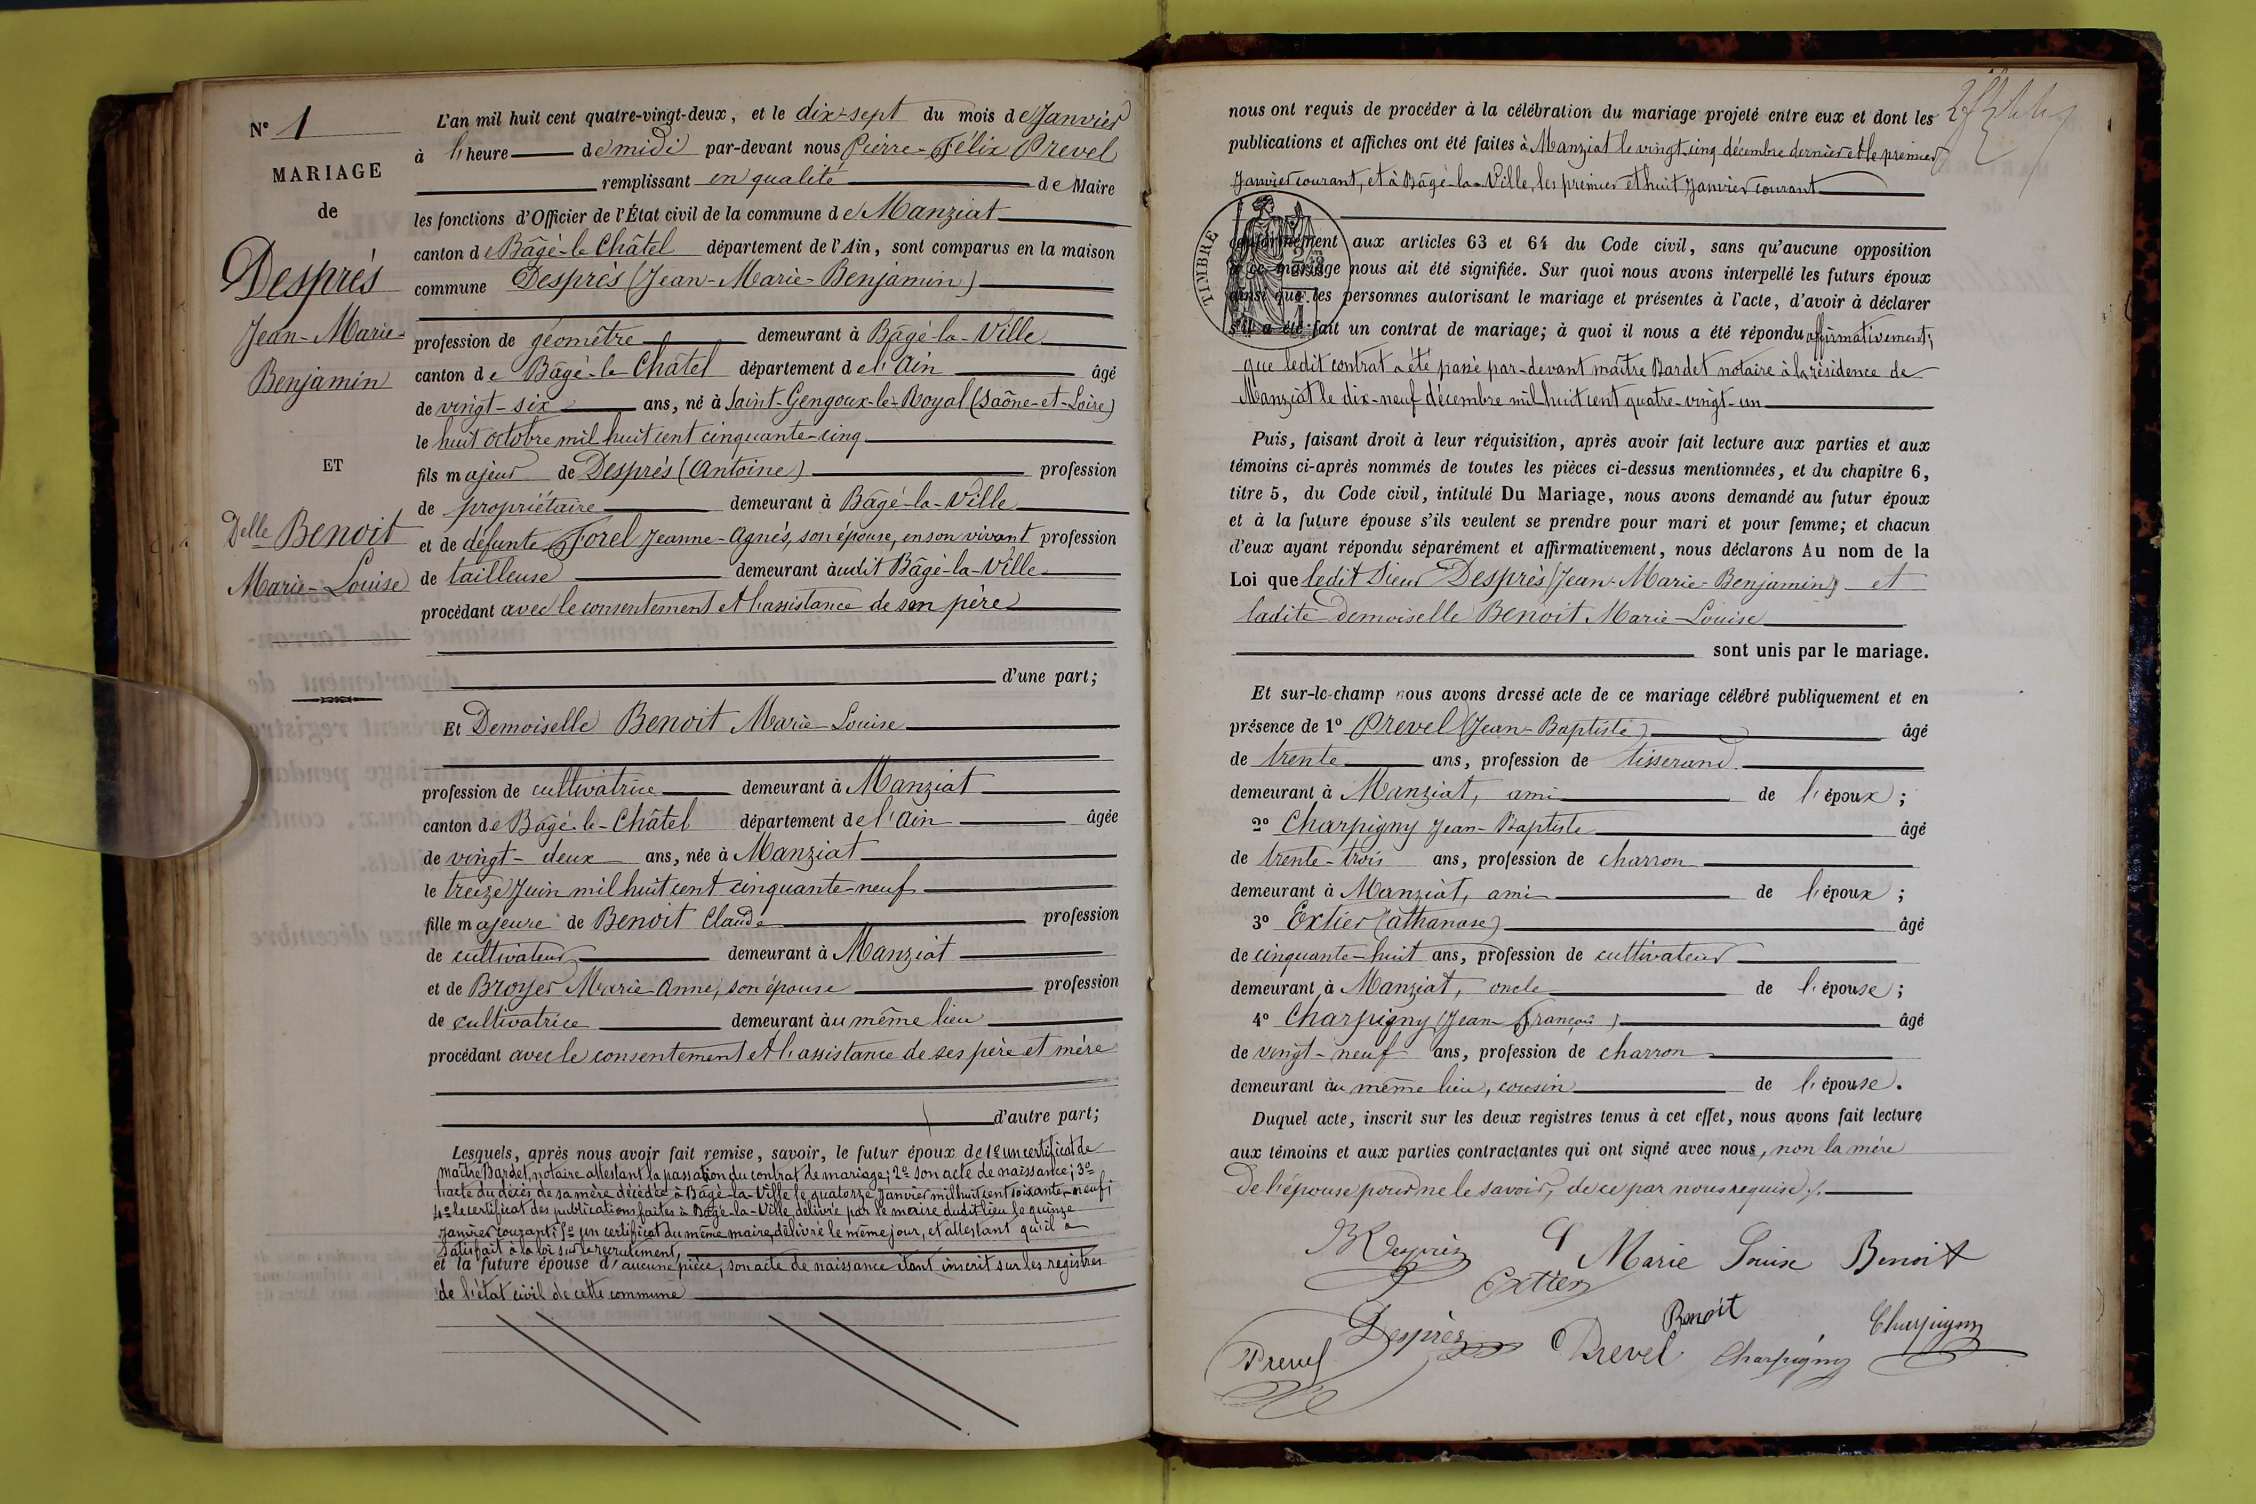 N° 1
MARIAGE
de
Desprès
Jean-Marie-
Benjamin
ET
Delle Benoit
Marie-Louise
L'an mil huit cent quatre-vingt-deux, et le dix-sept du mois de Janvier
à l'heure de midi par-devant nous Pierre-Félix Prevel
remplissant en qualité de Maire
les fonctions d'Officier de l'État civil de la commune de Manziat
canton de Bâgé-le-Châtel département de l'Ain, sont comparus en la maison
commune Desprès (Jean-Marie-Benjamin)
profession de géomètre demeurant à Bâgé-la-Ville
canton de Bâgé-le-Châtel département de l'Ain âgé
de vingt-six ans, né à Saint-Gengoux-le-Royal (Saône-et-Loire)
le huit octobre mil huit cent cinquante-cinq
fils majeur de Desprès (Antoine) profession
de propriétaire demeurant à Bâgé-la-Ville
et de défunte Forel Jeanne-Agnès, son épouse, en son vivant profession
de tailleuse demeurant àudit Bâgé-la-Ville
procédant avec le consentement et l'assistance de son père
d'une part;
Et Demoiselle Benoit Marie-Louise
profession de cultivatrice demeurant à Manziat
canton de Bâgé-le-Châtel département de l'Ain âgée
de vingt-deux ans, née à Manziat
le treize Juin mil huit cent cinquante-neuf
fille majeure de Benoit Claude profession
de cultivateur demeurant à Manziat
et de Broyer Marie Anne, son épouse profession
de cultivatrice demeurant àu même lieu
procédant avec le consentement et l'assistance de ses père et mère
d'autre part;
Lesquels, après nous avoir fait remise, savoir, le futur époux de 1° un certificat de
maître Bardet, notaire attestant la passation du contrat de mariage; 2° son acte de naissance; 3°
l'acte du décès de sa mère décédée à Bâgé-la-Ville le quatorze Janvier mil huit cent soixante-neuf;
4° le certificat des publications faites à Bâgé-la-Ville, délivré par le maire dudit lieu le quinze
Janvier courant; 5° un certificat du même maire, délivré le même jour, et attestant qu'il a
satisfait à la loi sur le recrutement,
et la future épouse d'aucune pièce, son acte de naissance étant inscrit sur les registres
de l'état civil de cette commune
nous ont requis de procéder à la célébration du mariage projeté entre eux et dont les
publications et affiches ont été faites à Manziat le vingt-cinq décembre dernier et le premier
Janvier courant, et à Bâgé-la-Ville, les premier et huit Janvier courant
TIMBRE
conformément aux articles 63 et 64 du Code civil, sans qu'aucune opposition
à ce mariage nous ait été signifiée. Sur quoi nous avons interpellé les futurs époux
ainsi que les personnes autorisant le mariage et présentes à l'acte, d'avoir à déclarer
s'il a été fait un contrat de mariage; à quoi il nous a été répondu affirmativement;
que ledit contrat a été passé par-devant maître Bardet notaire à la résidence de
Manziat le dix-neuf décembre mil huit cent quatre-vingt-un
Puis, faisant droit à leur réquisition, après avoir fait lecture aux parties et aux
témoins ci-après nommés de toutes les pièces ci-dessus mentionnées, et du chapitre 6,
titre 5, du Code civil, intitulé Du Mariage, nous avons demandé au futur époux
et à la future épouse s'ils veulent se prendre pour mari et pour femme; et chacun
d'eux ayant répondu séparément et affirmativement, nous déclarons Au nom de la
Loi que ledit Sieur Desprès (Jean-Marie-Benjamin) et
ladite demoiselle Benoit Marie-Louise
sont unis par le mariage.
Et sur-le-champ nous avons dressé acte de ce mariage célébré publiquement et en
présence de 1° Prevel (Jean-Baptiste) âgé
de trente ans, profession de tisserand
demeurant à Manziat, ami de l'époux;
2° Charpigny Jean-Baptiste âgé
de trente-trois ans, profession de charron
demeurant à Manziat, ami de l'époux;
3° Extier (Athanase) âgé
de cinquante-huit ans, profession de cultivateur
demeurant à Manziat, oncle de l'épouse;
4° Charpigny (Jean François) âgé
de vingt-neuf ans, profession de charron
demeurant àu même lieu, cousin de l'épouse.
Duquel acte, inscrit sur les deux registres tenus à cet effet, nous avons fait lecture
aux témoins et aux parties contractantes qui ont signé avec nous, non la mère
de l'épouse pour ne le savoir, de ce par nous requise.
Desprès Marie Louise Benoit
Extier
Benoit
Desprès Charpigny
Prevel Prevel Charpigny